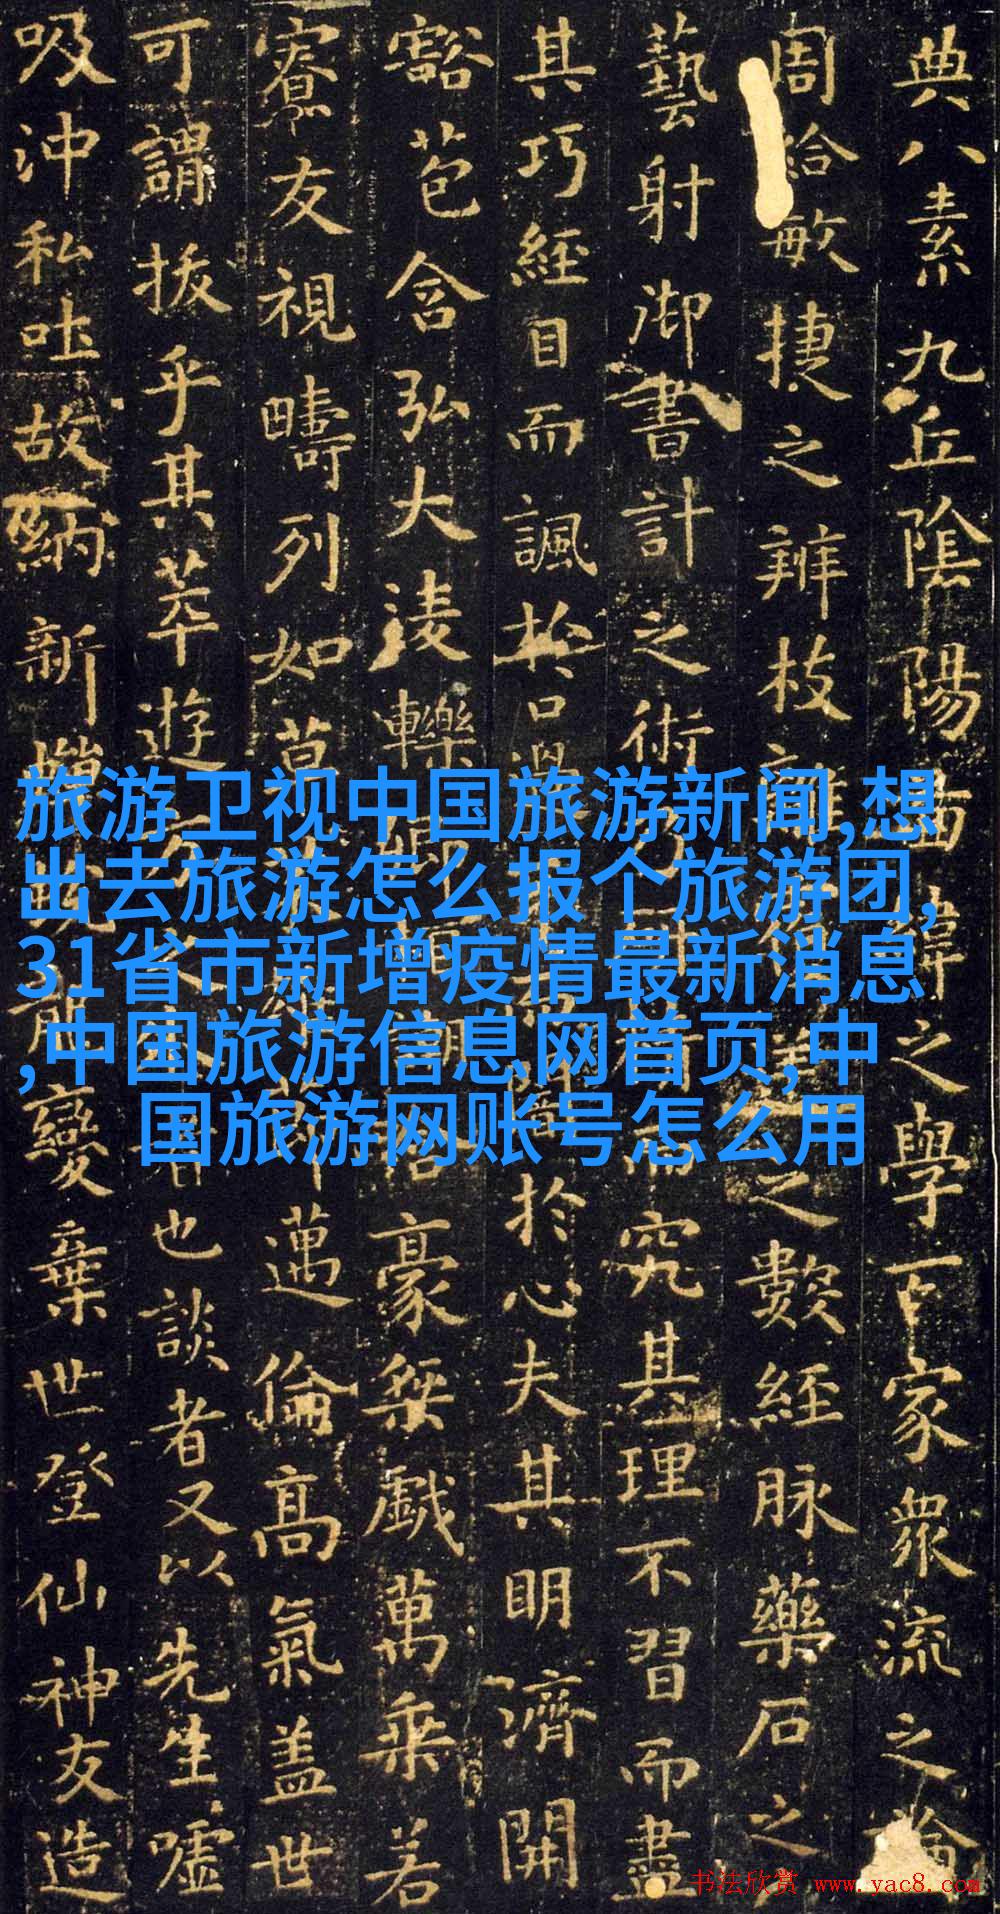 典八素九丘陰陽啚緯之學百家衆流之論
周給敏捷之辨枝之數經脉藥石之
藝射御書計之術究其理不習而盡
其巧經目而諷於口於心夫其明濟開
豁苞含弘大淩轢豪桀戯萬乘若
寮友視疇列如草邁倫高氣盖世
可謂拔乎其萃遊者也談者又以先生噓
吸沖和吐故納新變棄世登仙神友造
旅游卫视中国旅游新闻,想
出去旅游怎么报个旅游团,
31省市新增疫情最新消息
,中国旅游信息网首页,中
国旅游网账号怎么用
书法欣赏 www.yac8.com